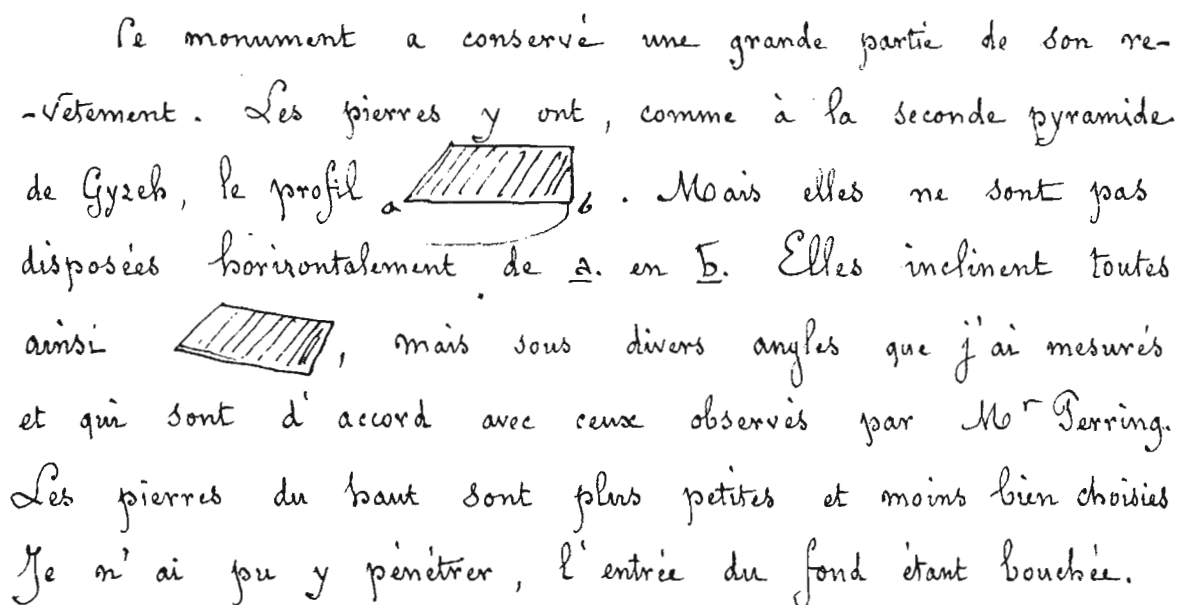 Ce monument a conservé une grande partie de son re-
-vêtement. Les pierres y ont, comme à la seconde pyramide
de Gyzeh, le profil a b. Mais elles ne sont pas
disposées horizontalement de a. en b. Elles inclinent toutes
ainsi , mais sous divers angles que j'ai mesurés
et qui sont d'accord avec ceux observés par Mr Perring.
Les pierres du haut sont plus petites et moins bien choisies
Je n'ai pu y pénétrer, l'entrée du fond étant bouchée.